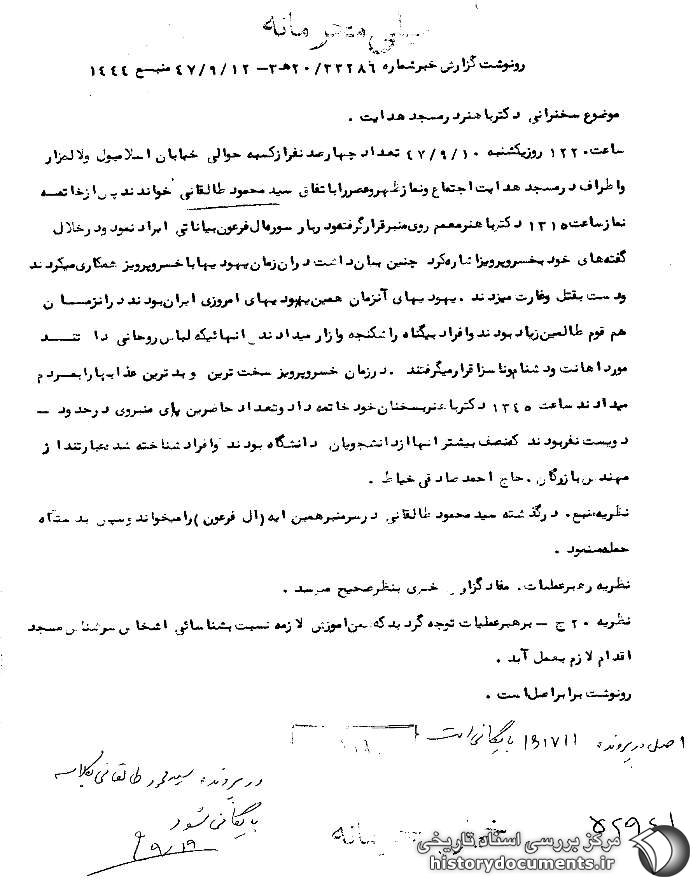 خیلی محرمانه
رونوشت گزارش خبرشماره ۲۰/۳۳۲۸۶هـ۳ – ۴۷/۹/۱۲ منبع ۱۴۴۴
موضوع سخنرانی دکترباهنردرمسجد هدایت .
ساعت ۱۲۲۰ روزیکشنبه ۴۷/۹/۱۰ تعداد چهارصدنفرازکسبه حوالی خیابان اسلامبول ولاله‌زار
واطراف درمسجد هدایت اجتماع ونمازظهروعصرراباتفاق سید محمود طالقانی خواندند پس‌ازخاتمه
نمازساعت ۱۳۱۵ دکترباهنرمعمم روی‌منبرقرارگرفته‌ودرباره سوره‌آل فرعون‌بیاناتی ایراد نمود ودرخلال
گفته‌های خودبخسروپرویزاشاره‌کرد چنین بیان‌داشت درآن‌زمان یهودیهاباخسروپرویز همکاری‌میکردند
ودست بقتل وغارت میزدند . یهودیهای آنزمان همین‌یهودیهای امروزی ایران‌بودند درآنزمان
هم قوم ظالمین‌زیاد بودند وافراد بیگناه راشکنجه وآزار میدادند آنهائیکه لباس‌روحانی داشتند
مورداهانت ودشنام‌وناسزاقرارمیگرفتند . درزمان خسروپرویز سخت ترین وبدترین عذابهارابمردم
میدادند ساعت ۱۳۴۵ دکترباهنربسخنان‌خودخاتمه دادوتعداد حاضرین پای منبروی درحدود –
دویست نفربودند که‌نصف بیشترآنهاازدانشجویان دانشگاه بودند وافراد شناخته شده‌عبارتنداز
مهندس‌بازرگان . حاج احمدصادقی خیاط .
نظریه‌منبع . درگذشته سیدمحمود طالقانی درسرمنبرهمین آیه (آل فرعون) رامیخواندوسپس به
حمله‌مینمود .
نظریه رهبرعملیات . مفادگزارش خبری بنظرصحیح میرسد .
نظریه ۲۰ ج – برهبرعملیات توجه گردیدکه ضمن‌آموزش لازمه نسبت بشناسائی اشخاص‌سرشناس مسجد
اقدام لازم بعمل آید .
رونوشت برابراصل‌است .
اصل در پرونده ۱۳۱۷۱۱ بایگانی است
در پرونده سید محمود طالقانی بکلاسه
بایگانی شود
۹/۱۹
محرمانه
مرکز بررسی اسناد تاریخی
historydocuments.ir